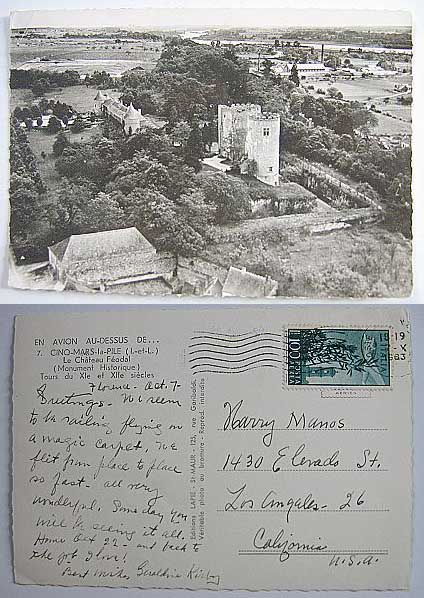 EN AVION AU-DESSUS DE...
7. CINQ-MARS-la-PILE (I.-et-L.)
Le Château Féodal
(Monument Historique)
Tours du XIe et XIIe siècles
Florence - Oct. 7 -
Greetings - We seem
to be sailing flying on
a magic carpet. We
flit from place to place
so fast - all very
wonderful. Some day you
will be seeing it all.
Home Oct 22 - and back to
the job I love!
Best wishes Geraldine
Editions LAPIE - St-MAUR - 125, rue Garibaldi
Véritable photo au bromure - Reprod. interdite
100
19
X
Harry Manos
1430 Elevado St.
Los Angeles - 26
California
U.S.A.